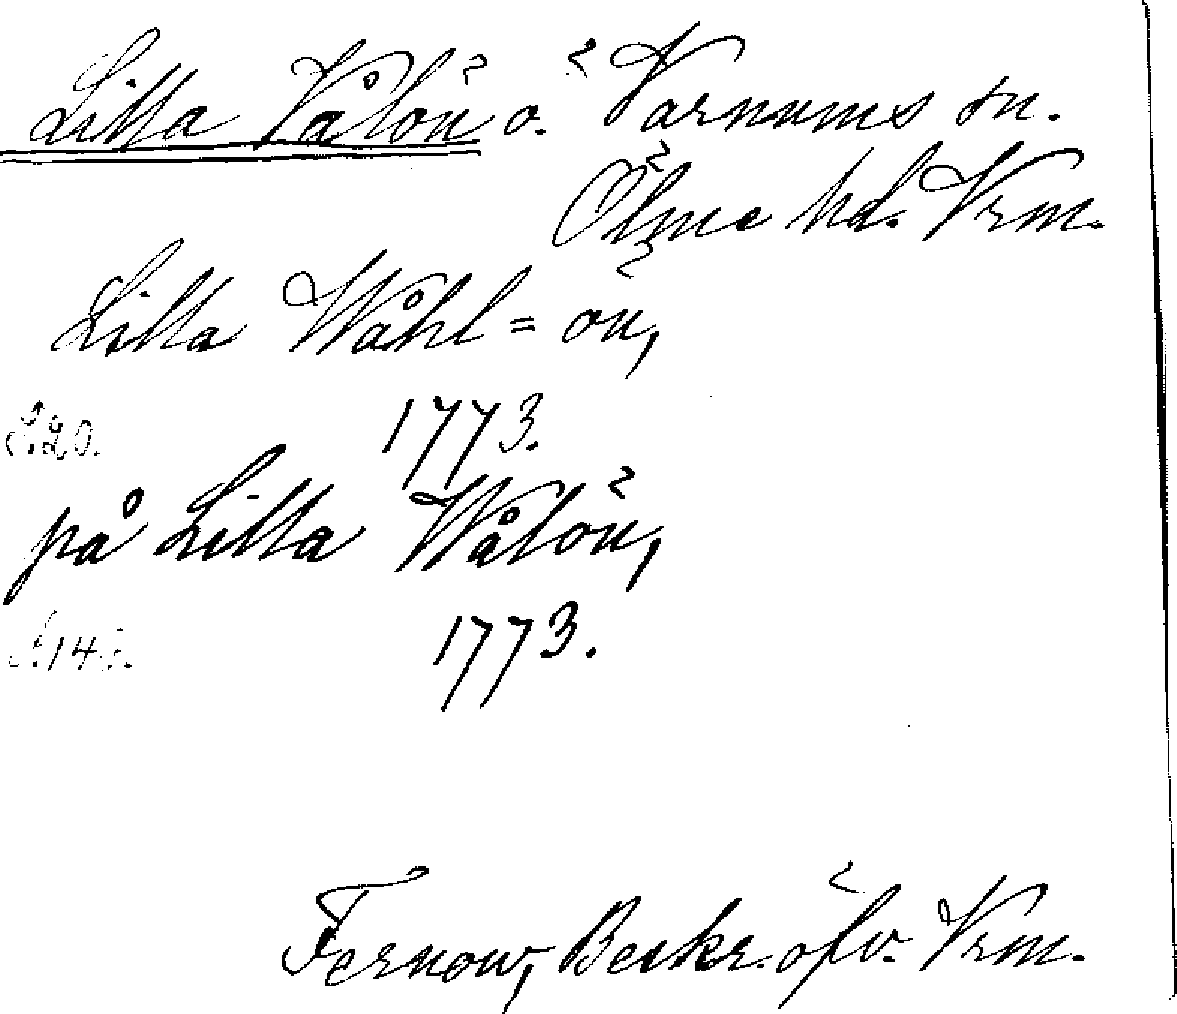 Lilla Vålön ö. Varnums sn.
Ölme hd. Vrm.
Lilla Wåhl=ön,
S.20. 1773.
på Lilla Wålön,
1773.
Fernow, Beskr. öfv. Vrm.